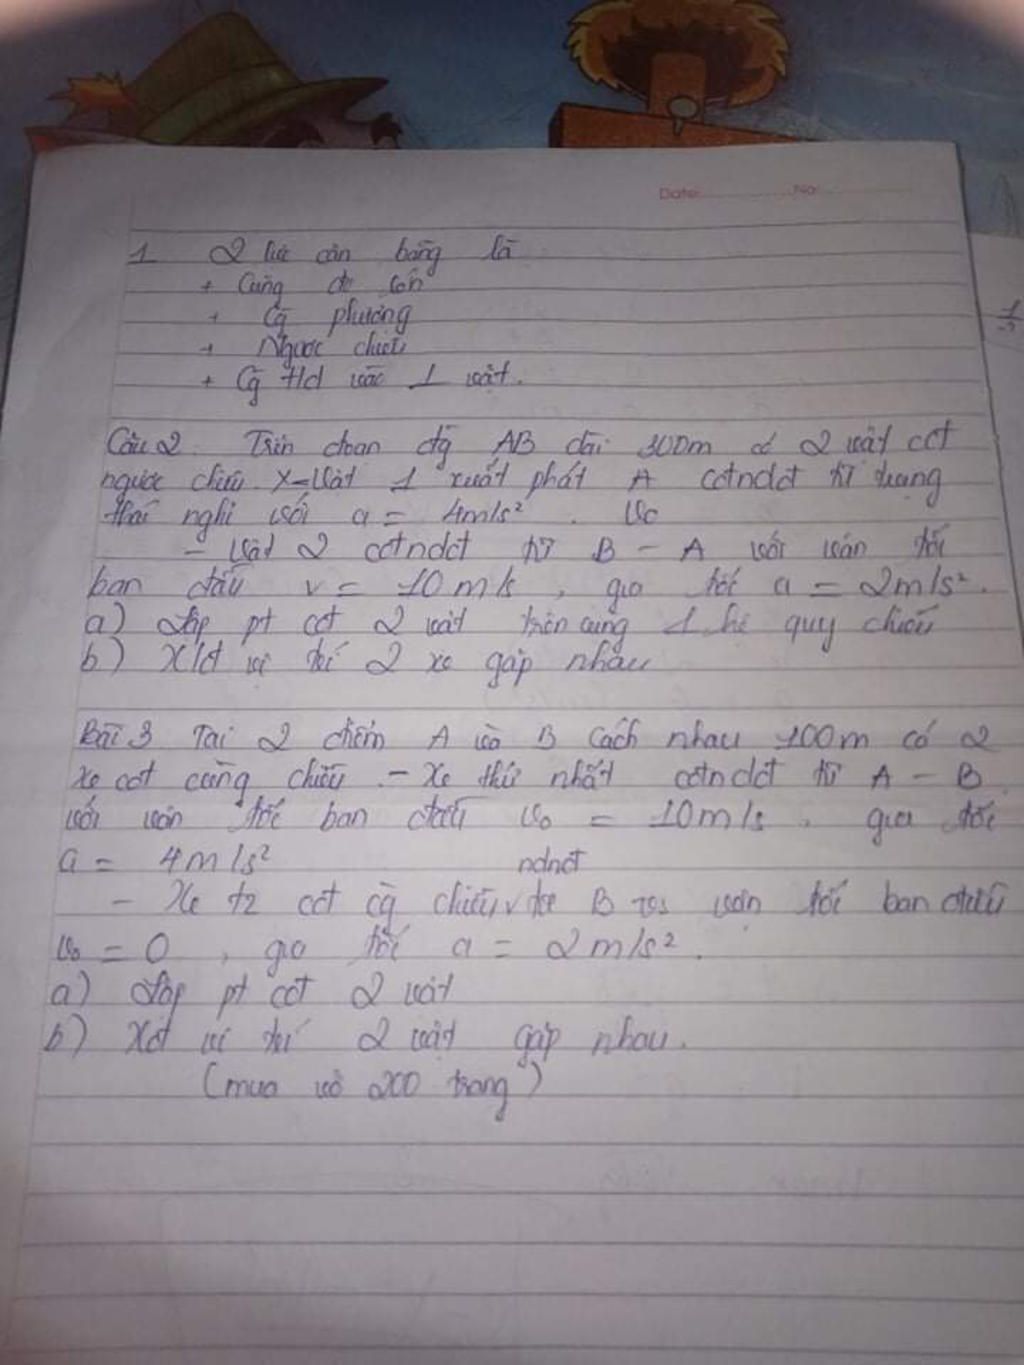 Date: No:
1 2 lực cân bằng là
+ Cùng độ lớn
+ Cg phương
+ Ngược chiều
+ Cg t/d vào 1 vật.
Câu 2. Trên đoạn đg AB dài 300m có 2 vật cđt
ngược chiều. Vật 1 xuất phát A cđtndđt từ trạng
thái nghỉ với a = 4m/s²
- Vật 2 cđtndđt từ B - A với vận tốc
ban đầu v = 10m/s, gia tốc a = 2m/s².
a) Lập pt cđt 2 vật trên cùng 1 hệ quy chiếu
b) Xđ vị trí 2 xe gặp nhau
Bài 3 Tại 2 điểm A và B cách nhau 100m có 2
xe cđt cùng chiều - Xe thứ nhất cđtndđt từ A - B
với vận tốc ban đầu v₀ = 10m/s. gia tốc
a = 4m/s² ndnđt
- Xe t2 cđt cg chiều từ B với vận tốc ban đầu
v₀ = 0, gia tốc a = 2m/s².
a) Lập pt cđt 2 vật
b) Xđ vị trí 2 vật gặp nhau.
(mua vở 200 trang)